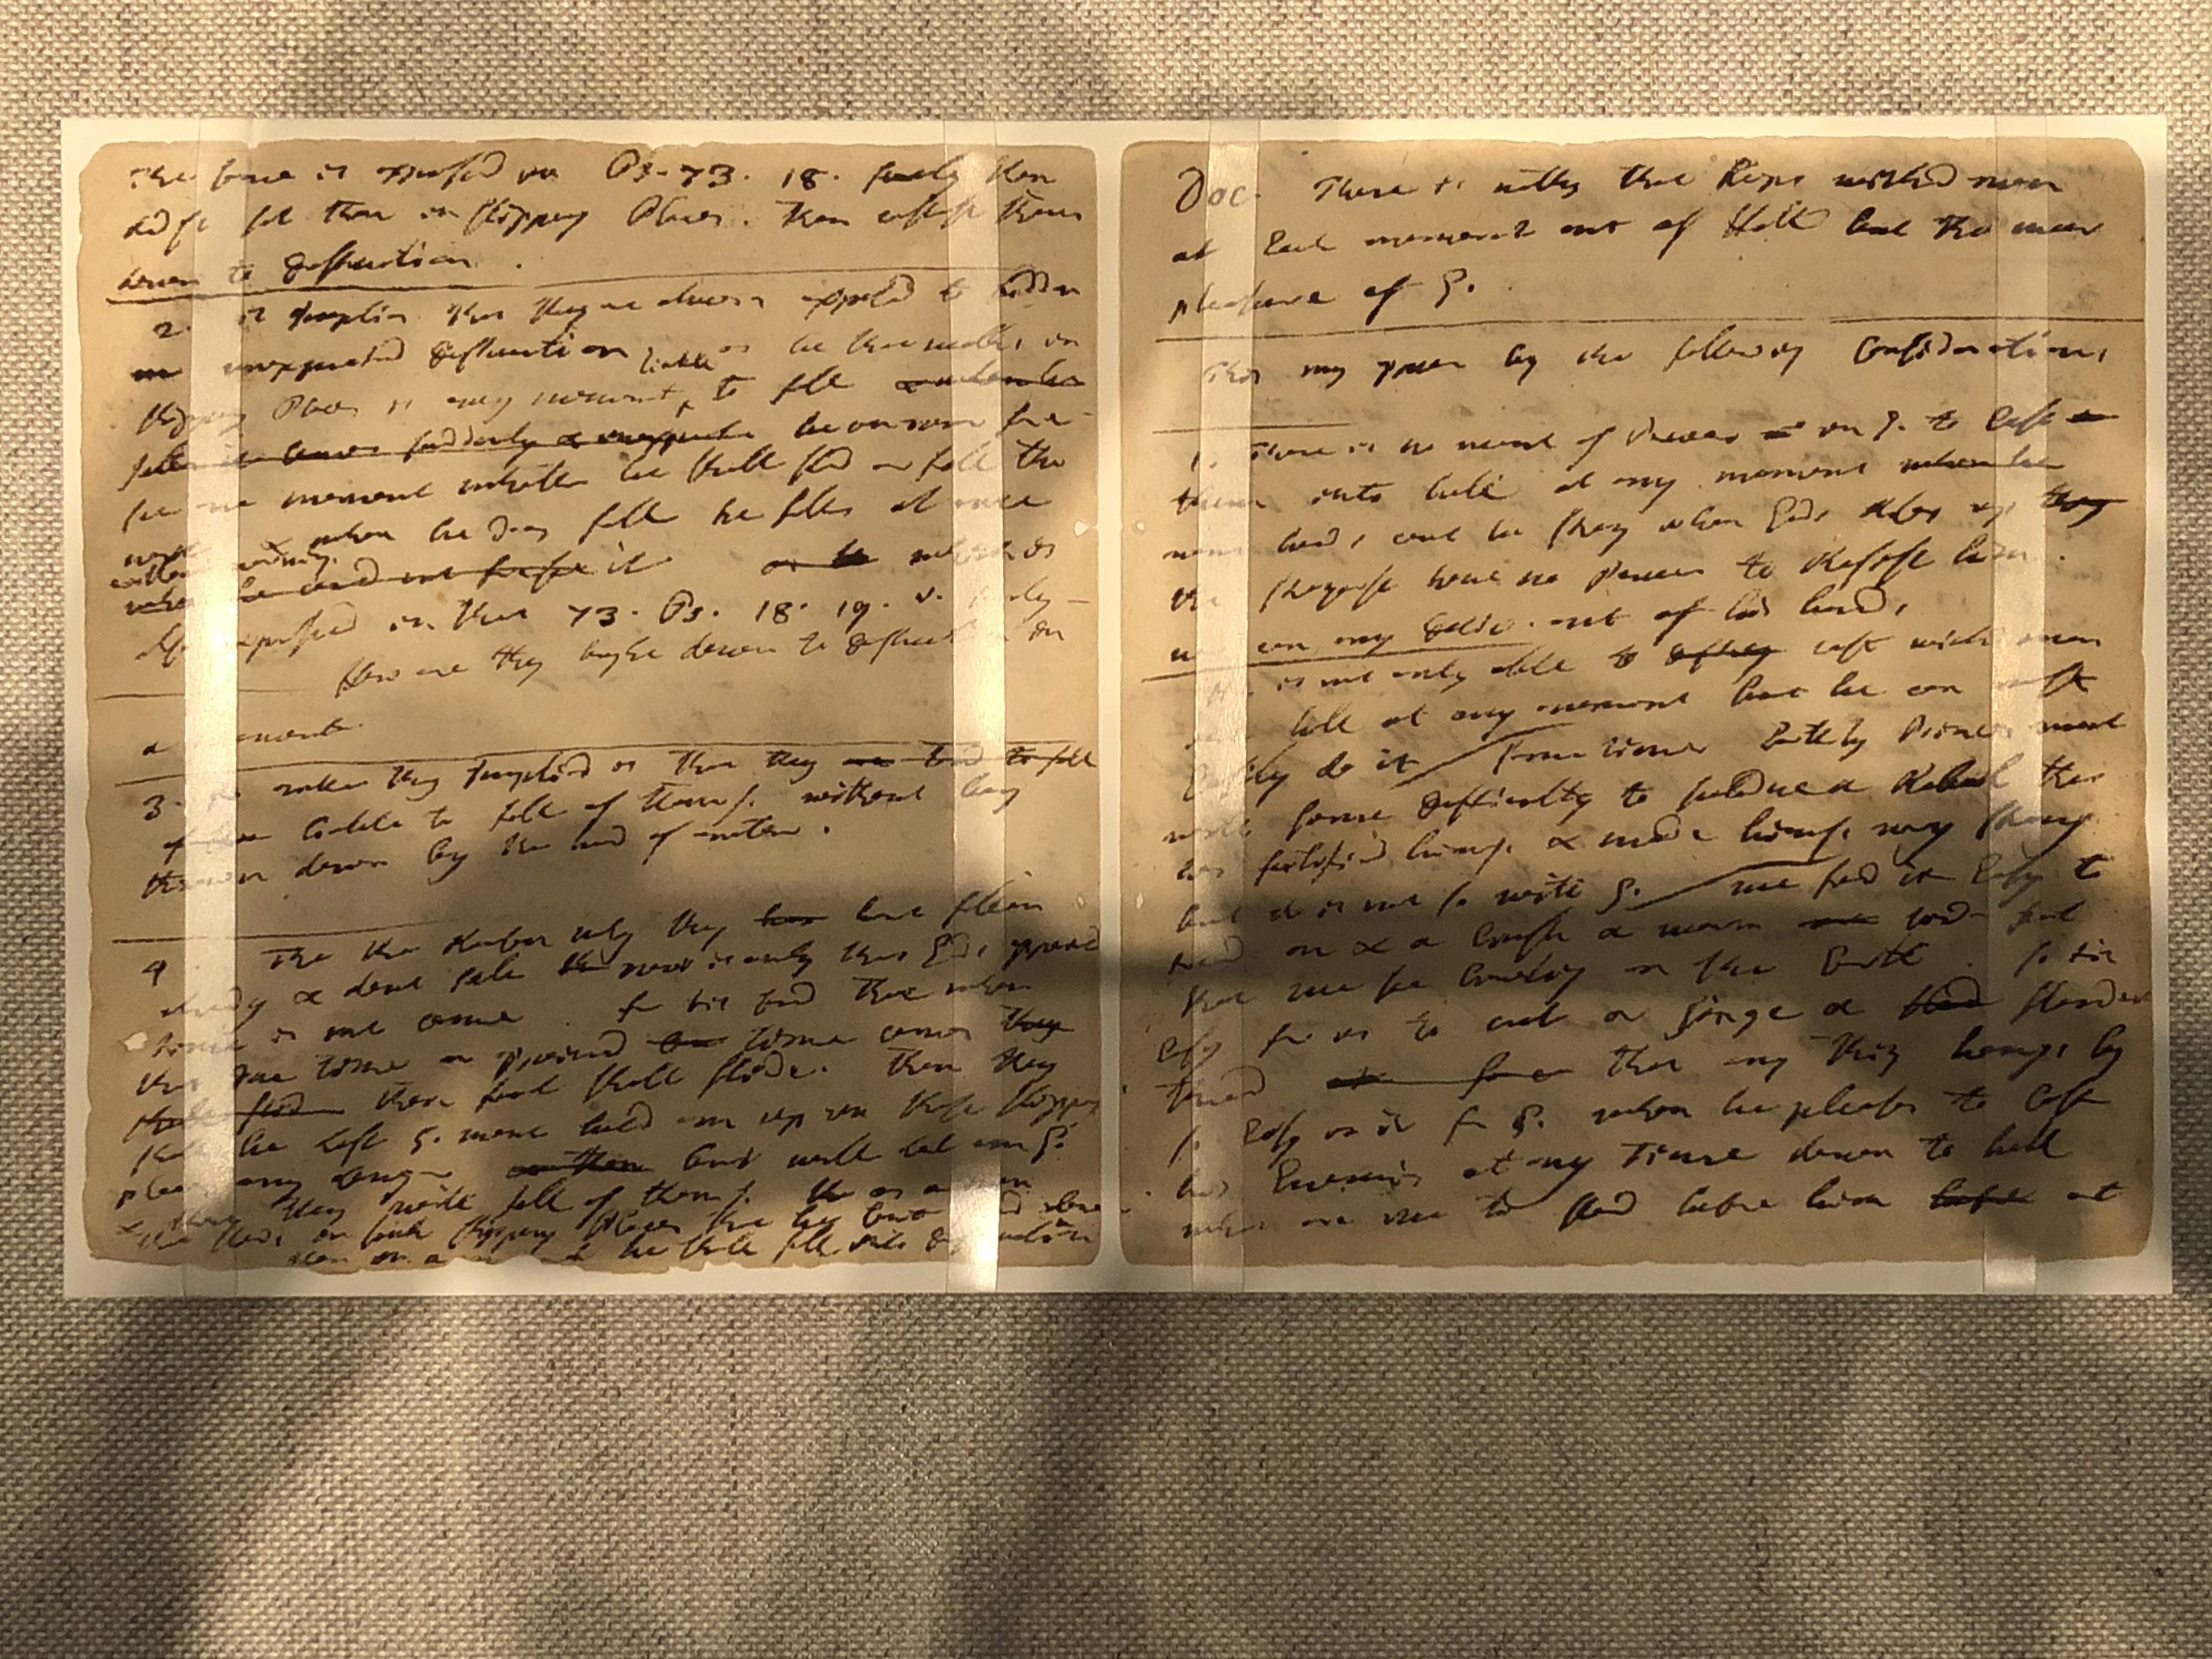 The same is expressed in Ps. 73. 18. surely thou
didst set them in slippery Places. Thou castest them
down to destruction.
2. it implies that they were always exposed to sudden
unexpected destruction as he that walks in
slippery Places is every moment liable to fall
he cannot fore
see one moment whether he shall stand or fall the
next when he does fall he falls at once
without warning. which is
also expressed in that 73. Ps. 18. 19. v. surely –
How are they brought down to destruction in
a moment
3. another thing implied is that they are
liable to fall of thems. without being
thrown down by the hand of another.
4 the Reason why they have fallen
already & dont fall now is only that Gods appointed
time is not come. for tis said that when
that due time or appointed time comes
their foot shall slide. then they
shall be left G. wont hold em up in these slippery
places any longer but will let em go.
they will fall of thems. as
that stands on such slippery Places
Doc. There is nothing that keeps wicked men
at Each moment out of Hell but the meer
pleasure of G.
This may appear by the following Considerations
1. There is no want of Power in G. to Cast
them into hell at any moment
mens hands cant be strong when God rises up
the strongest have no Power to Resist him.
nor can any deliv. out of his hands,
He is not only able to cast wicked men
into hell at any moment but he can most
Easily do it Sometimes Earthly Princes meet
with some difficulty to subdue a Rebel that
has fortified hims. & made hims. very strong
but it is not so with G. we find it Easy to
tread on & crush a worm
that we see crawling on the Earth so tis
Easy for us to cut or singe a slender
thread that any thing hangs by
so Easy is it for G. when he pleases to Cast
his Enemies at any Time down to hell
what are we to stand before him at